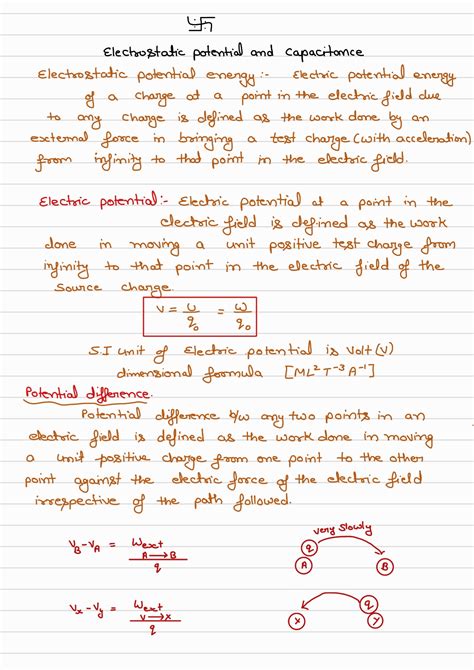 卐
Electrostatic potential and Capacitance
Electrostatic potential energy :- Electric potential energy
of a charge at a point in the electric field due
to any charge is defined as the work done by an
external force in bringing a test charge (with acceleration)
from infinity to that point in the electric field.
Electric potential :- Electric potential at a point in the
electric field is defined as the work
done in moving a unit positive test charge from
infinity to that point in the electric field of the
source charge.
V = U/q₀ = W/q₀
S.I unit of Electric potential is Volt (V)
dimensional formula [ML² T⁻³ A⁻¹]
Potential difference.
Potential difference b/w any two points in an
electric field is defined as the work done in moving
a unit positive charge from one point to the other
point against the electric force of the electric field
irrespective of the path followed.
very slowly
V_B - V_A = W_ext A→B / q
q
A B
V_x - V_y = W_ext Y→X / q
q
X Y